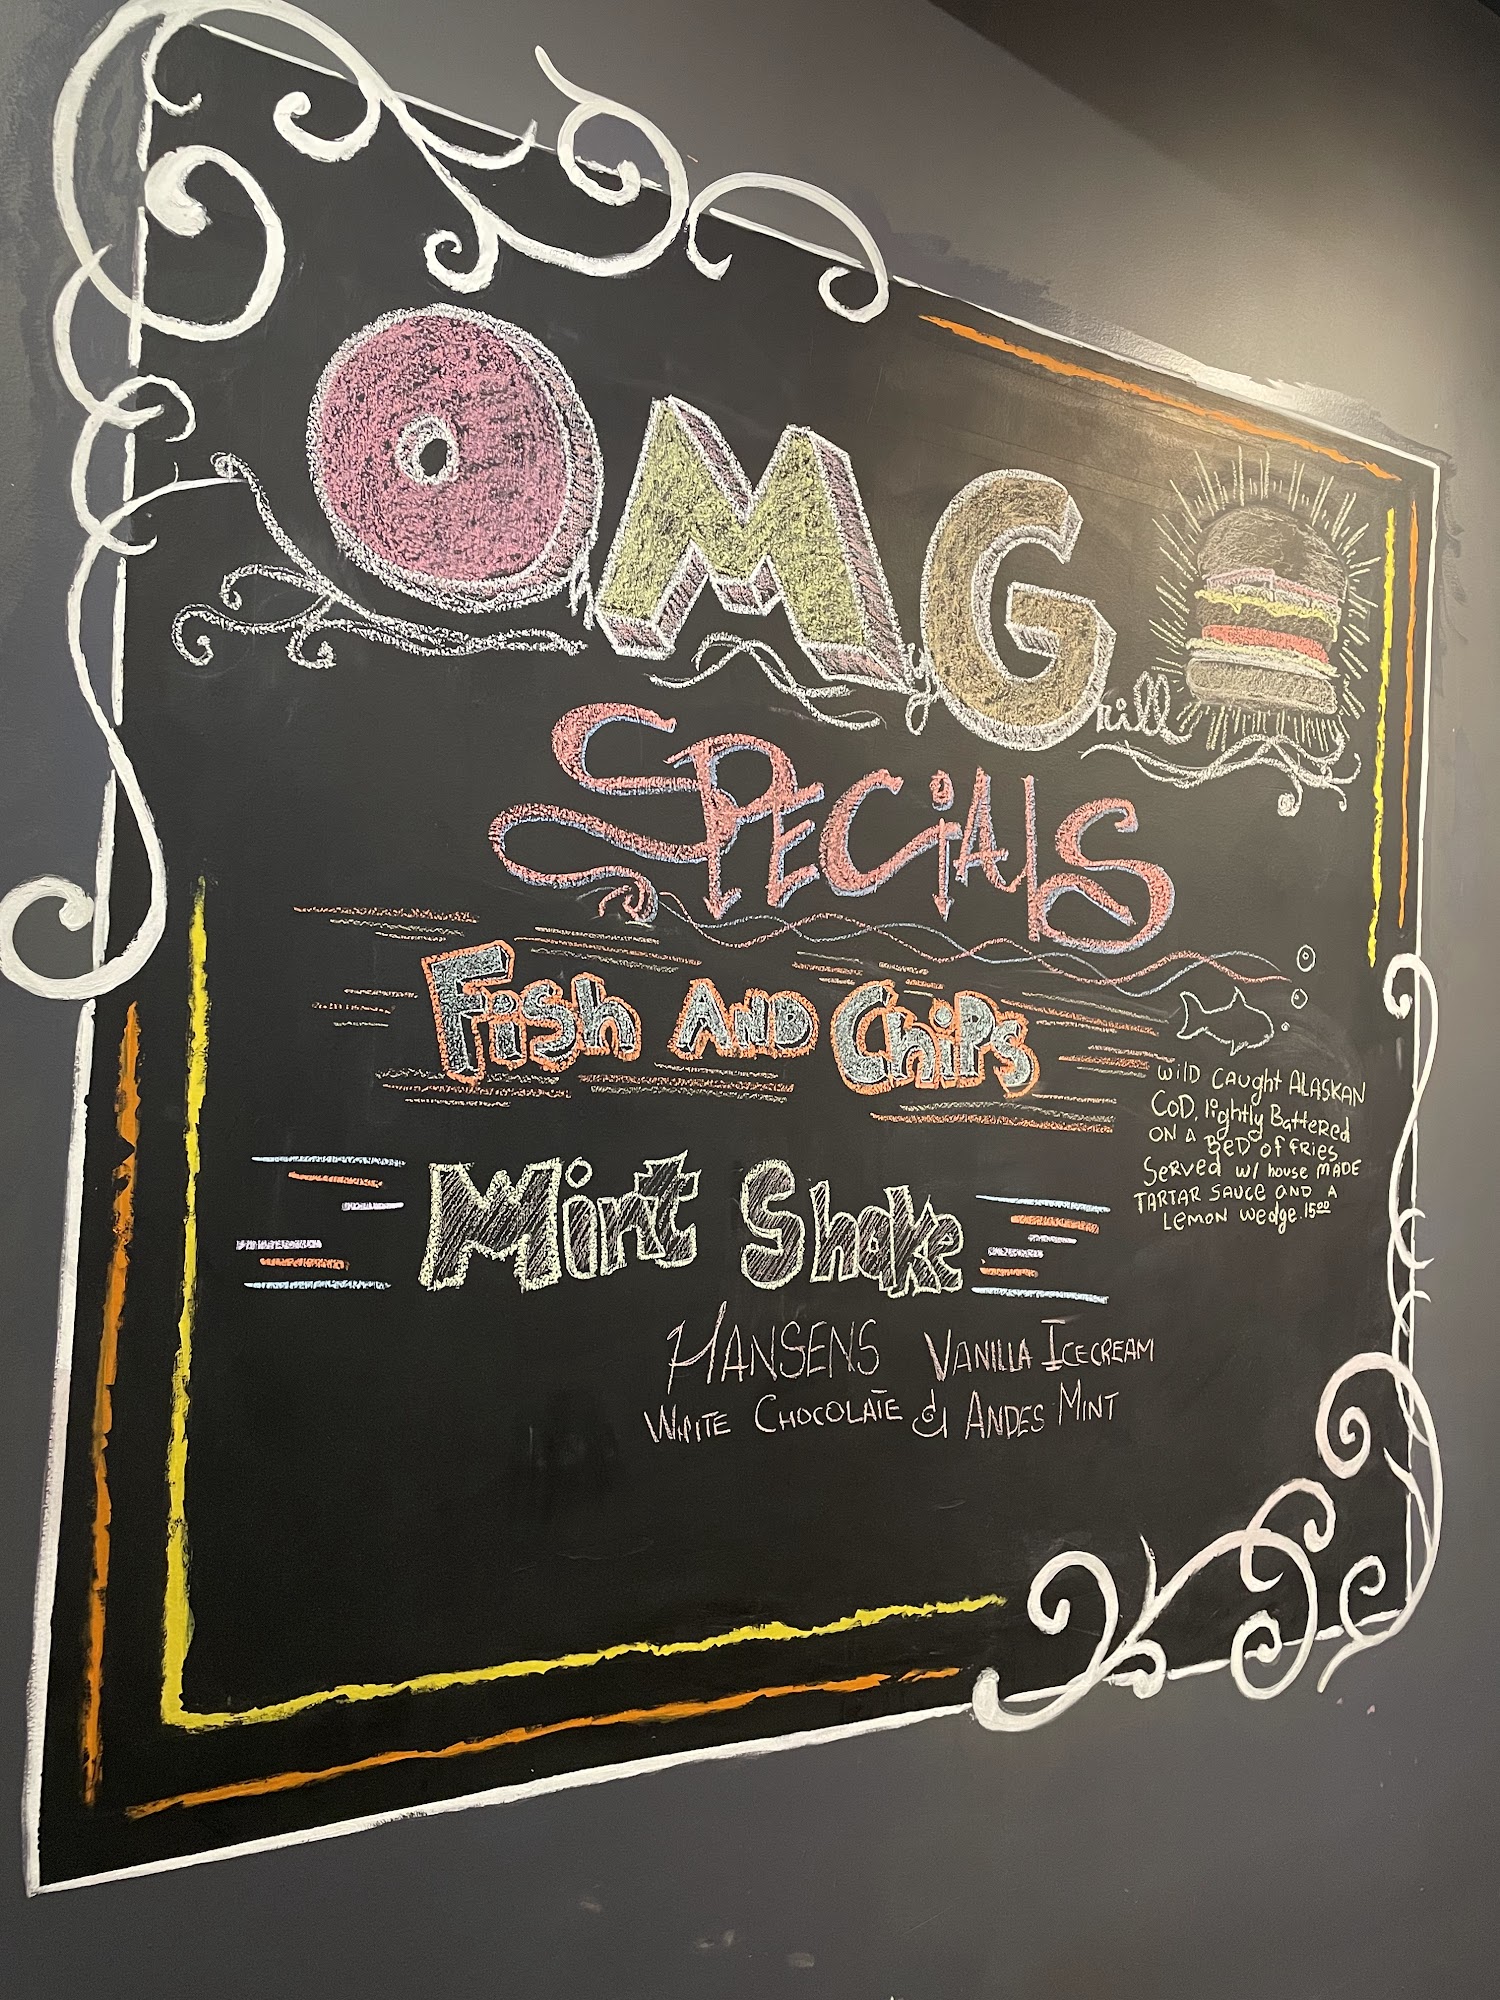 Oh My Grill
SPECiAlS
Fish AND ChiPs
WilD CAught ALASKAN
COD, lightly BatteReD
ON A BED OF FRiES
SeRVeD W/ house MADE
TARTAR SAUCe AND A
LeMON Wedge. 15.00
Mint Shake
HANSENS VANILLA ICECREAM
WHITE CHOCOLATE & ANDES MINT